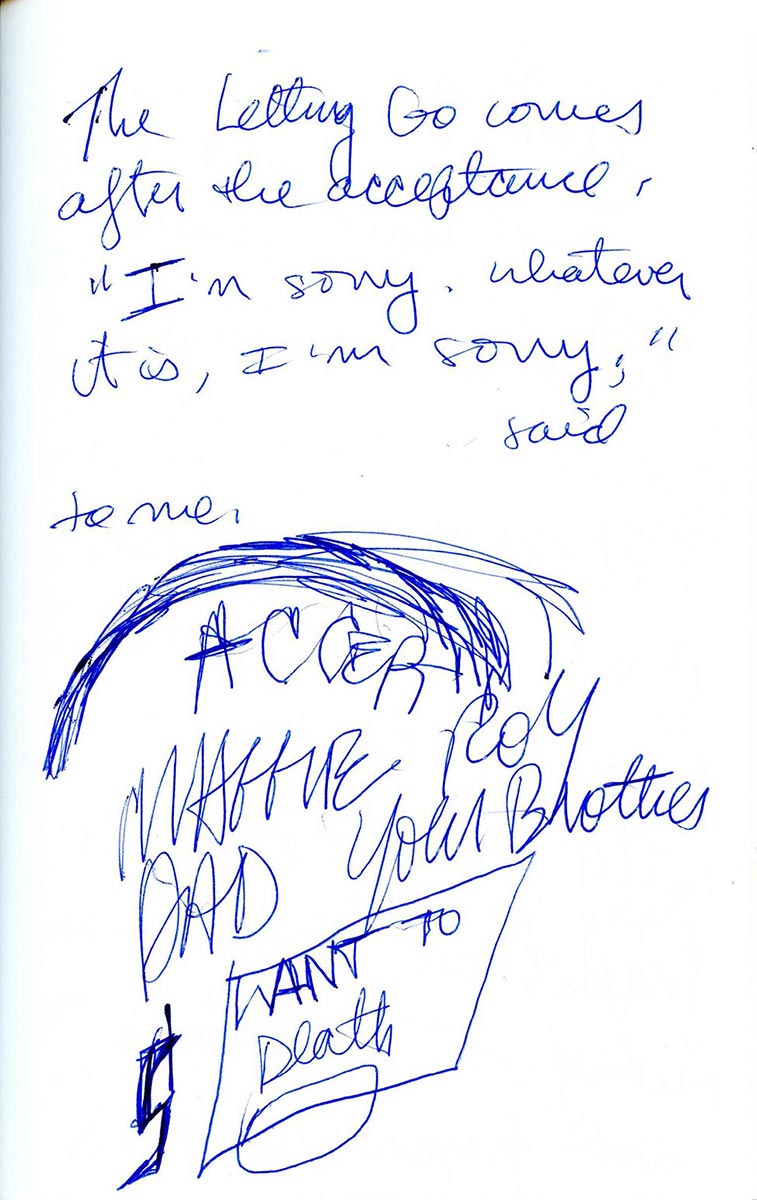 The Letting Go comes
after the acceptance.
"I'm sorry. whatever
it is, I'm sorry,"
said
to me.
ACCEPT
MATTIE ROY
DAD Your Brother
WANT TO
Death